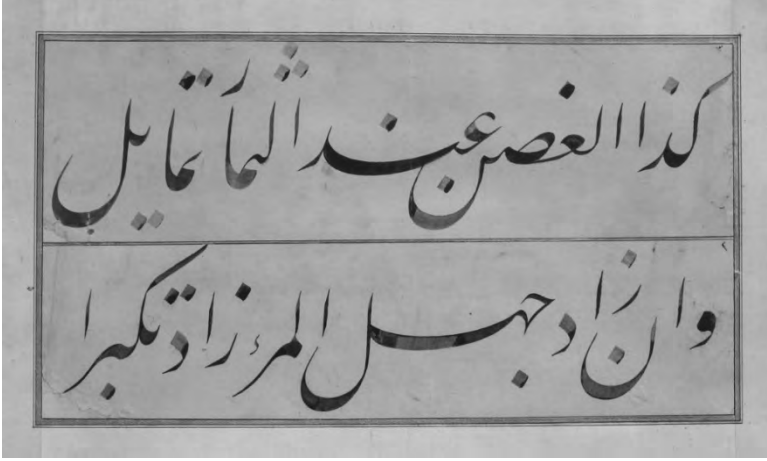 كذا الغصن عند الثمار تمايل
وان زاد جهل المرء زاد تكبرا